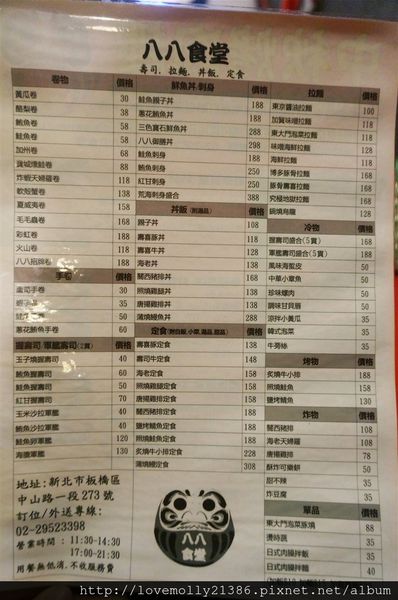 八八食堂
壽司. 拉麵. 丼飯. 定食
卷物 價格
黃瓜卷 30
酪梨卷 38
鮪魚卷 58
鮭魚卷 58
加州卷 68
88
炸蝦天婦羅卷 118
軟殼蟹卷 138
夏威夷卷 158
毛毛蟲卷 168
彩虹卷 188
火山卷 188
八八招牌卷 188
手卷 價格
30
35
50
蔥花鮪魚手卷 60
握壽司 軍艦壽司(2貫) 價格
玉子燒握壽司 40
鮪魚握壽司 60
鮭魚握壽司 50
紅甘握壽司 70
玉米沙拉軍艦 40
鮪魚沙拉軍艦 40
鮭魚卵軍艦 120
海膽軍艦 130
地址: 新北市板橋區
中山路一段273號
訂位/外送專線:
02-29523398
營業時間 : 11:30-14:30
17:00-21:30
用餐無低消. 不收服務費
鮮魚丼.刺身 價格
鮭魚親子丼 188
蔥花鮪魚丼 188
三色寶石鮮魚丼 288
八八御膳丼 298
鮭魚刺身 188
鮪魚刺身 250
紅甘刺身 250
荒海刺身盛合 388
丼飯(附湯品) 價格
親子丼 108
壽喜豚丼 118
壽喜牛丼 128
海老丼 138
關西豬排丼 168
照燒雞腿丼 138
唐揚雞排丼 138
蒲燒鰻魚丼 288
定食(附白飯,小菜,湯品,甜品) 價格
壽喜豚定食 138
壽司牛定食 148
海老定食 158
照燒雞腿定食 158
唐揚雞排定食 158
關西豬排定食 188
鹽烤鯖魚定食 188
照燒鮭魚定食 188
炙燒牛小排定食 228
蒲燒鰻定食 308
八八
食堂
拉麵 價格
東京醬油拉麵 100
加賀味噌拉麵 118
東大門泡菜拉麵 118
味噌海鮮拉麵 128
海鮮拉麵 118
博多豚骨拉麵 168
豚骨壽喜拉麵 168
究極地獄拉麵 168
鍋燒烏龍 128
冷物 價格
握壽司盛合(5貫) 168
軍艦壽司盛合(5貫) 168
風味海蜇皮 50
中華小章魚 50
珍味螺肉 50
調味甘貝唇 50
涼拌小黃瓜 35
韓式泡菜 35
牛蒡絲 35
烤物 價格
炙燒牛小排 188
照燒鮭魚 158
鹽烤鯖魚 130
炸物 價格
關西豬排 108
海老天婦羅 108
唐揚雞排 78
酥炸可樂餅 50
甜不辣 35
炸豆腐 35
單品 價格
東大門泡菜豚燒 88
燙時蔬 35
日式肉燥拌飯 35
日式肉燥拌麵 40
http://lovemolly21386.pixnet.net/album